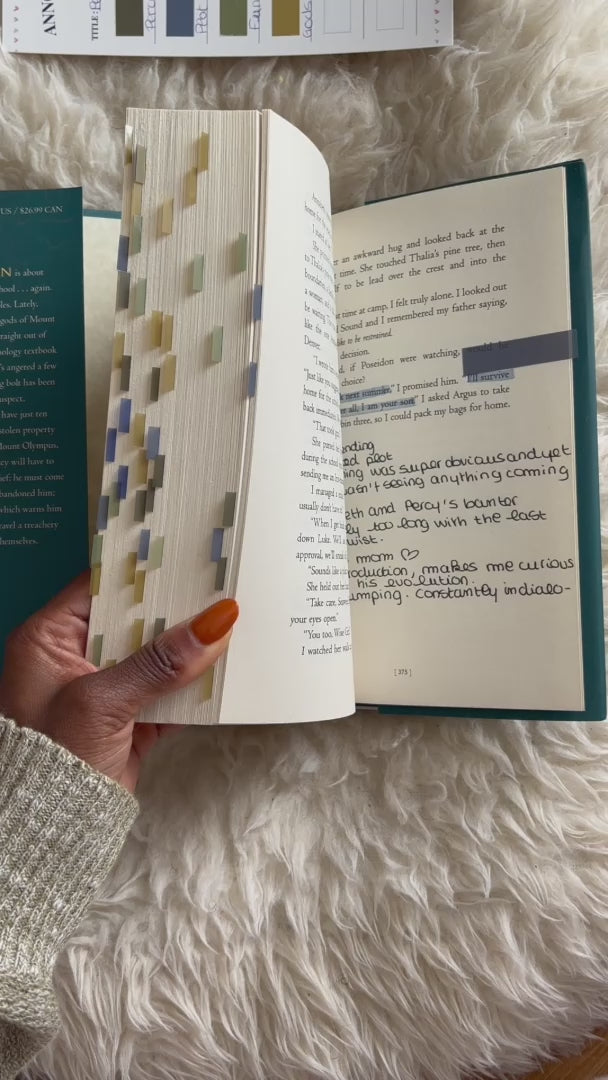 ANN
TITLE: Pe
Plot
Gods
US / $26.99 CAN
N is about
hool . . . again.
les. Lately,
gods of Mount
raight out of
nology textbook
's angered a few
g bolt has been
uspect.
have just ten
stolen property
Mount Olympus.
ey will have to
ief: he must come
bandoned him;
which warns him
ravel a treachery
hemselves.
home for the
I
She
to Thalia
boundaries
a woman
be waiting
like the
Denver.
"I
"Just like you
home for the
back immediately
"That
She
during the school
sending me an
I managed a
usually don't have
"When I get
down Luke. We'll
approval, we'll
"Sounds like a
She held out her
"Take care, Seaweed
your eyes open."
"You too, Wise Girl
I watched her walk
er an awkward hug and looked back at the
time. She touched Thalia's pine tree, then
f to be lead over the crest and into the
t time at camp, I felt truly alone. I looked out
Sound and I remembered my father saying,
like to be restrained.
decision.
d, if Poseidon were watching, would he
choice?
k next summer," I promised him. "I'll survive
er all, I am your son." I asked Argus to take
bin three, so I could pack my bags for home.
ending
ed plot
ing was super obvious and yet
asn't seeing anything coming
eth and Percy's bantor
ly too long with the last
wist.
mom ♡
roduction, makes me curious
his evolution.
umping. constantly in dialo-
[ 375 ]